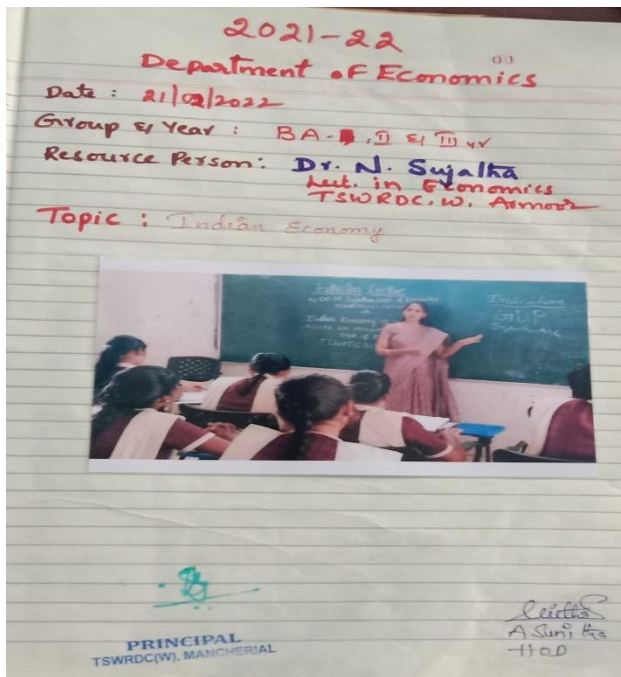 2021-22
Department of Economics
Date : 21/02/2022
Group & Year : BA- , II & III yr
Resource Person: Dr. N. Sujatha
Lect. in Economics
TSWRDC.W. Armoor
Topic : Indian Economy
Extension Lecture
Indian Economy
Indications
GDP
PRINCIPAL
TSWRDC(W). MANCHERIAL
A Sunitha
HOD